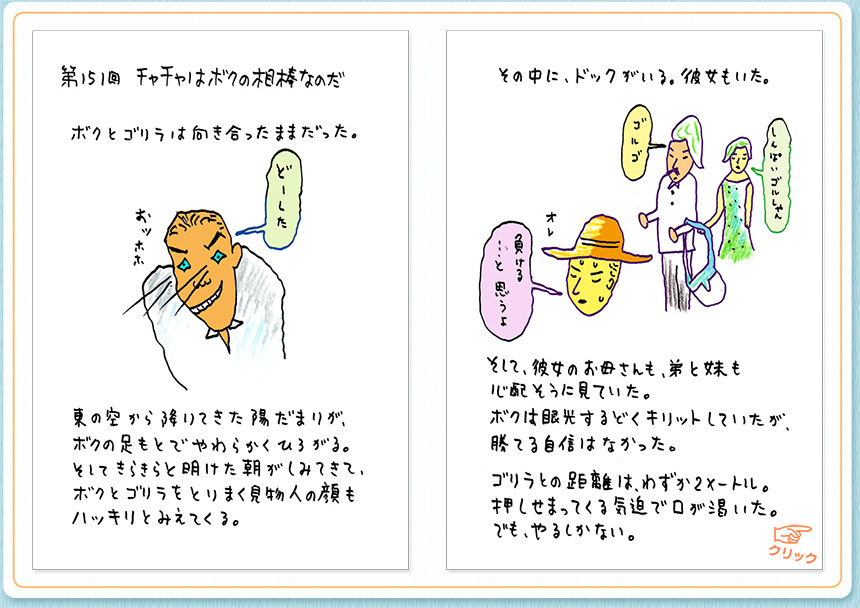 第151回 チャチャはボクの相棒なのだ
ボクとゴリラは向き合ったままだった。
どーした
おッホホ
東の空から降りてきた陽だまりが、
ボクの足もとでやわらかくひろがる。
そしてきらきらと明けた朝がしみてきて、
ボクとゴリラをとりまく見物人の顔も
ハッキリとみえてくる。
その中に、ドックがいる。彼女もいた。
ゴルゴ
しんぱいゴルしゃん
オレ
負ける
…と思うよ
そして、彼女のお母さんも、弟と妹も
心配そうに見ていた。
ボクは眼光するどくキリットしていたが、
勝てる自信はなかった。
ゴリラとの距離は、わずか2メートル。
押しせまってくる気迫で口が渇いた。
でも、やるしかない。
クリック